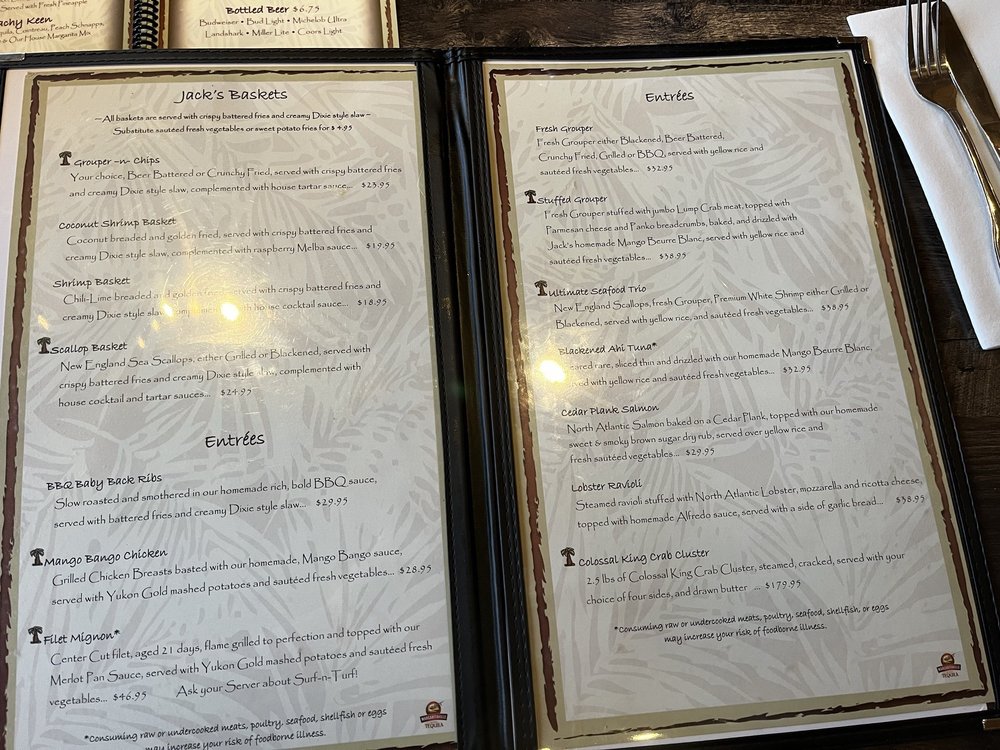 Served with Fresh Pineapple
achy Keen
quila, Cointreau, Peach Schnapps,
& Our House Margarita Mix
Bottled Beer $6.75
Budweiser • Bud Light • Michelob Ultra
Landshark • Miller Lite • Coors Light
Jack's Baskets
~All baskets are served with crispy battered fries and creamy Dixie style slaw~
Substitute sautéed fresh vegetables or sweet potato fries for $4.95
Grouper -n- Chips
Your choice, Beer Battered or Crunchy Fried, served with crispy battered fries
and creamy Dixie style slaw, complemented with house tartar sauce... $23.95
Coconut Shrimp Basket
Coconut breaded and golden fried, served with crispy battered fries and
creamy Dixie style slaw, complemented with raspberry Melba sauce... $19.95
Shrimp Basket
Chili-Lime breaded and golden fried, served with crispy battered fries and
creamy Dixie style slaw, complemented with house cocktail sauce... $18.95
Scallop Basket
New England Sea Scallops, either Grilled or Blackened, served with
crispy battered fries and creamy Dixie style slaw, complemented with
house cocktail and tartar sauces... $24.95
Entrées
BBQ Baby Back Ribs
Slow roasted and smothered in our homemade rich, bold BBQ sauce,
served with battered fries and creamy Dixie style slaw... $29.95
Mango Bango Chicken
Grilled Chicken Breasts basted with our homemade, Mango Bango sauce,
served with Yukon Gold mashed potatoes and sautéed fresh vegetables... $28.95
Filet Mignon*
Center Cut filet, aged 21 days, flame grilled to perfection and topped with our
Merlot Pan Sauce, served with Yukon Gold mashed potatoes and sautéed fresh
vegetables... $46.95 Ask your Server about Surf-n-Turf!
*Consuming raw or undercooked meats, poultry, seafood, shellfish or eggs
may increase your risk of foodborne illness.
MARGARITAVILLE
TEQUILA
Entrées
Fresh Grouper
Fresh Grouper either Blackened, Beer Battered,
Crunchy Fried, Grilled or BBQ, served with yellow rice and
sautéed fresh vegetables... $32.95
Stuffed Grouper
Fresh Grouper stuffed with jumbo Lump Crab meat, topped with
Parmesan cheese and Panko breadcrumbs, baked, and drizzled with
Jack's homemade Mango Beurre Blanc, served with yellow rice and
sautéed fresh vegetables... $38.95
Ultimate Seafood Trio
New England Scallops, fresh Grouper, Premium White Shrimp either Grilled or
Blackened, served with yellow rice, and sautéed fresh vegetables... $38.95
Blackened Ahi Tuna*
Seared rare, sliced thin and drizzled with our homemade Mango Beurre Blanc,
served with yellow rice and sautéed fresh vegetables... $32.95
Cedar Plank Salmon
North Atlantic Salmon baked on a Cedar Plank, topped with our homemade
sweet & smoky brown sugar dry rub, served over yellow rice and
fresh sautéed vegetables... $29.95
Lobster Ravioli
Steamed ravioli stuffed with North Atlantic Lobster, mozzarella and ricotta cheese,
topped with homemade Alfredo sauce, served with a side of garlic bread... $38.95
Colossal King Crab Cluster
2.5 lbs of Colossal King Crab Cluster, steamed, cracked, served with your
choice of four sides, and drawn butter ... $179.95
*Consuming raw or undercooked meats, poultry, seafood, shellfish, or eggs
may increase your risk of foodborne illness.
MARGARITAVILLE
TEQUILA